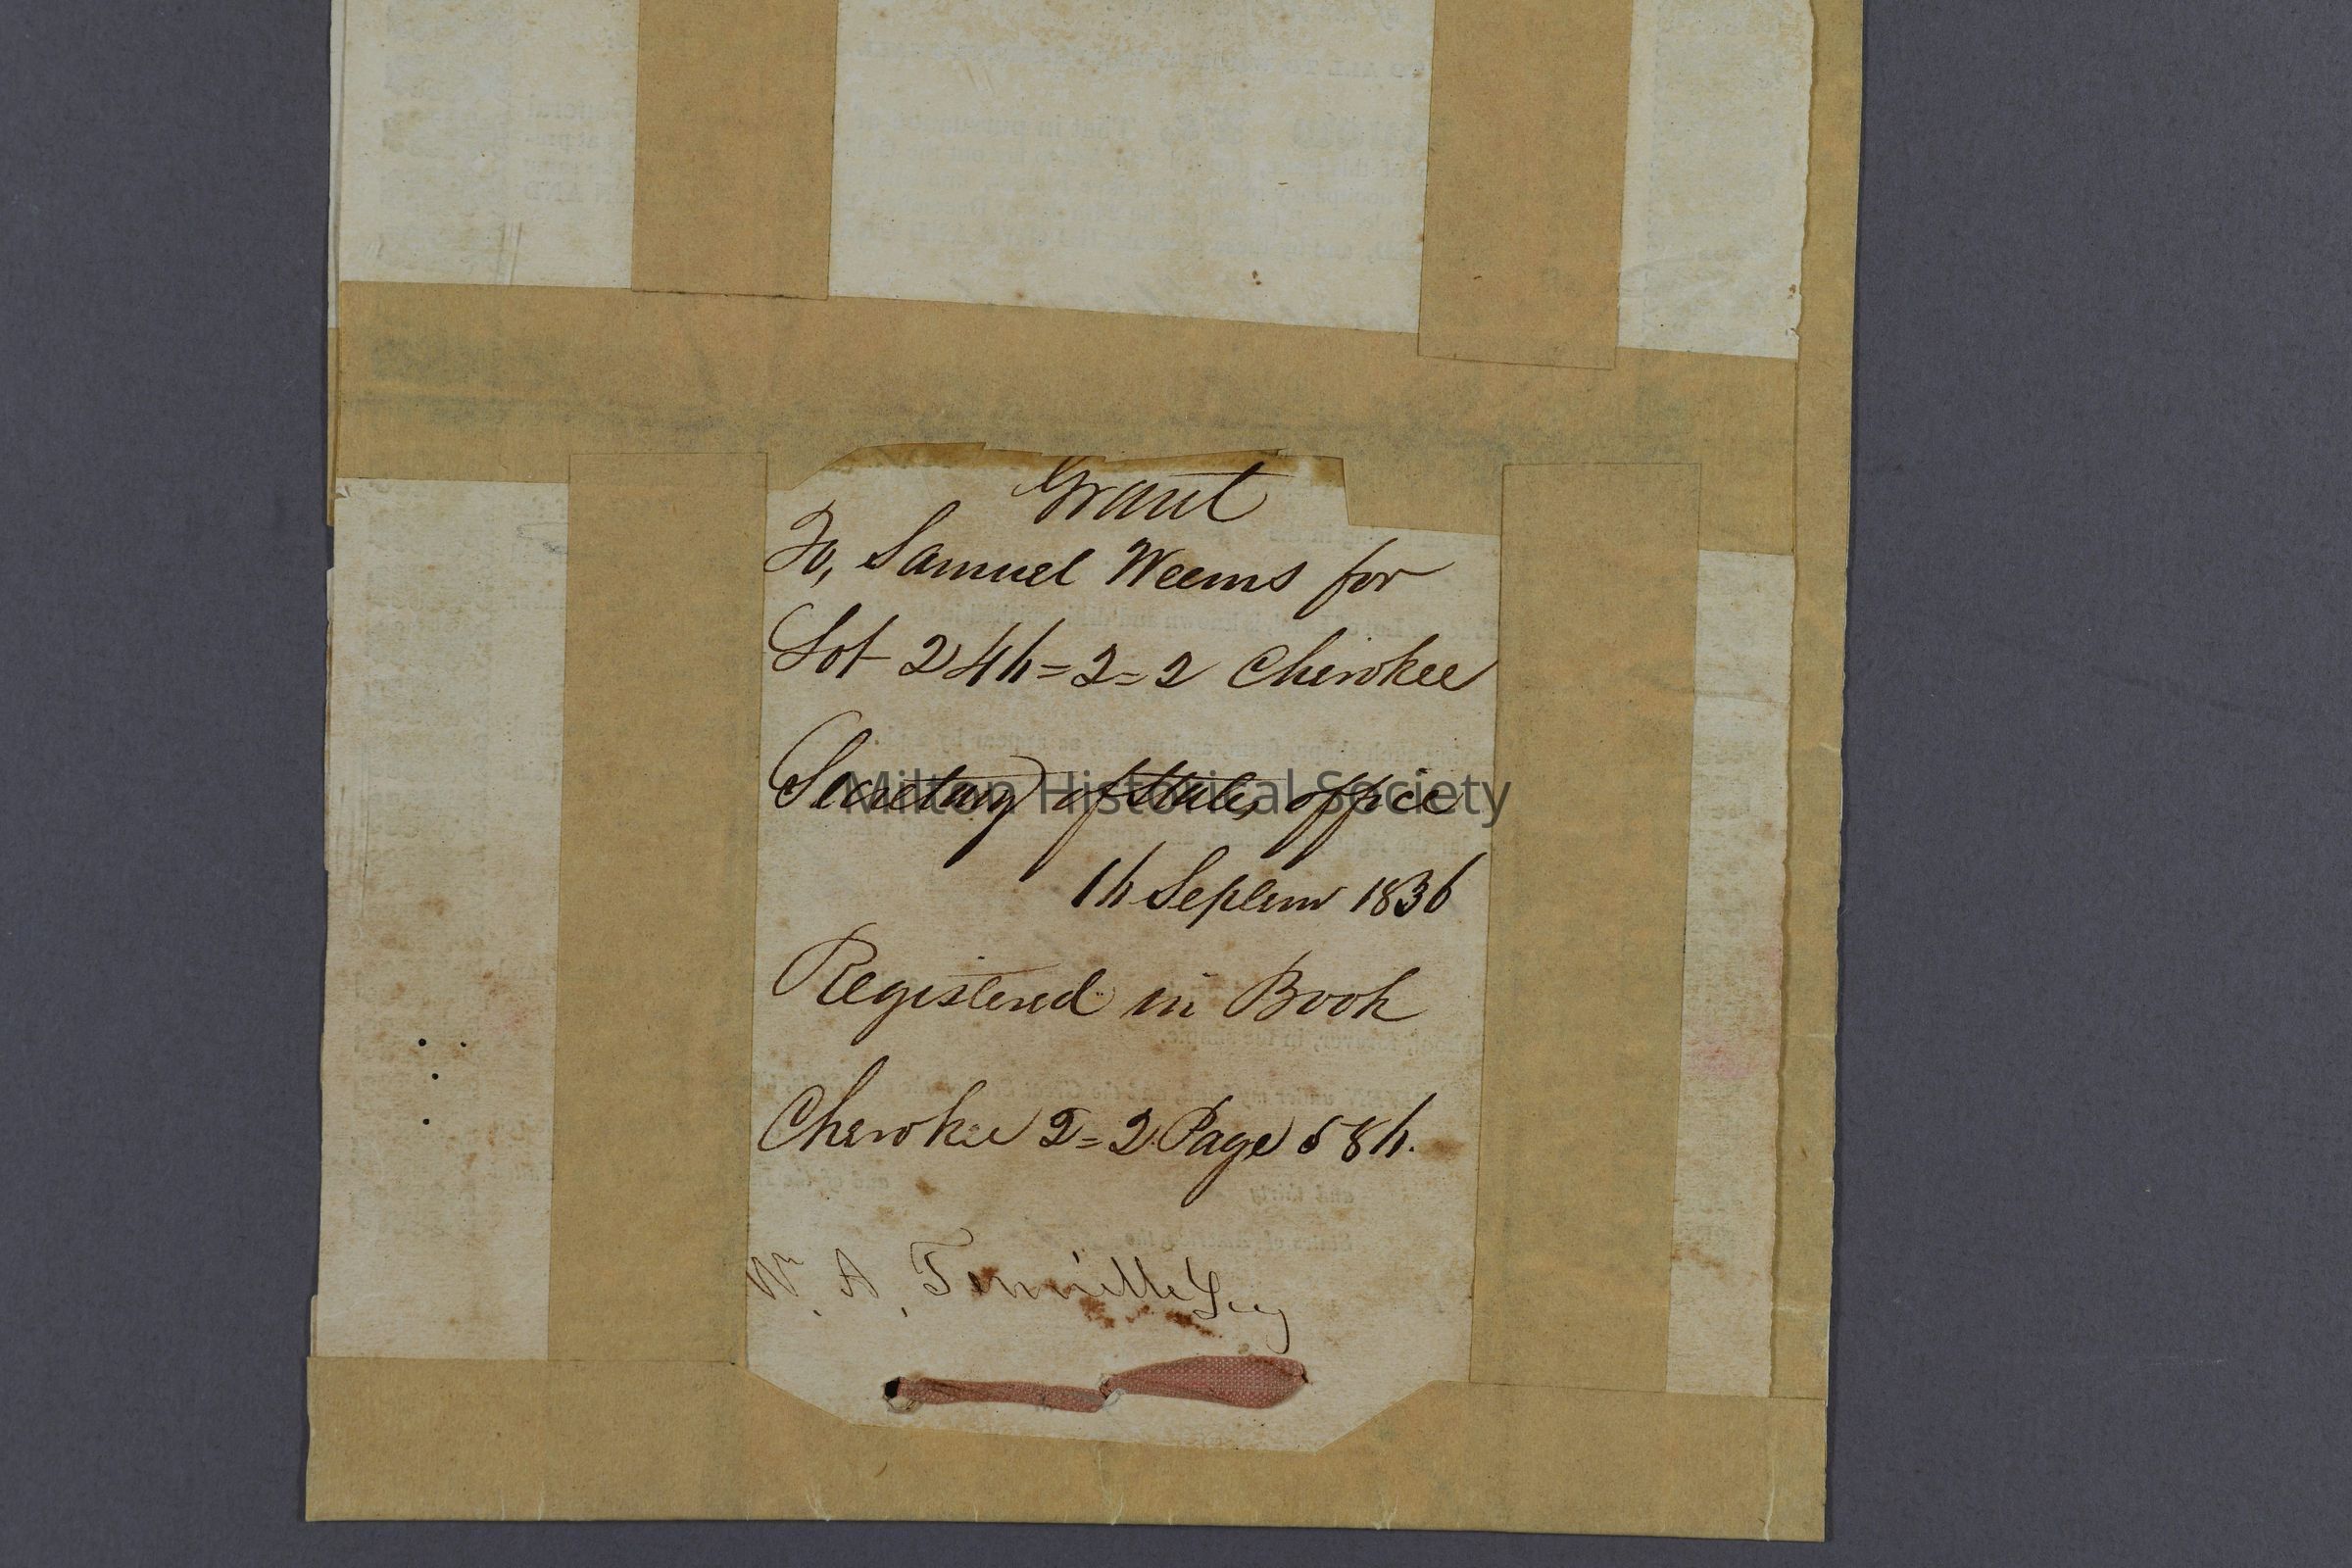 Grant
To, Samuel Weems for
Lot 244=2=2 Cherokee
Secretary of States office
14 Septem 1836
Registered in Book
Cherokee 2=2 Page 584.
Wm. A. Tennille Secy
Milton Historical Society